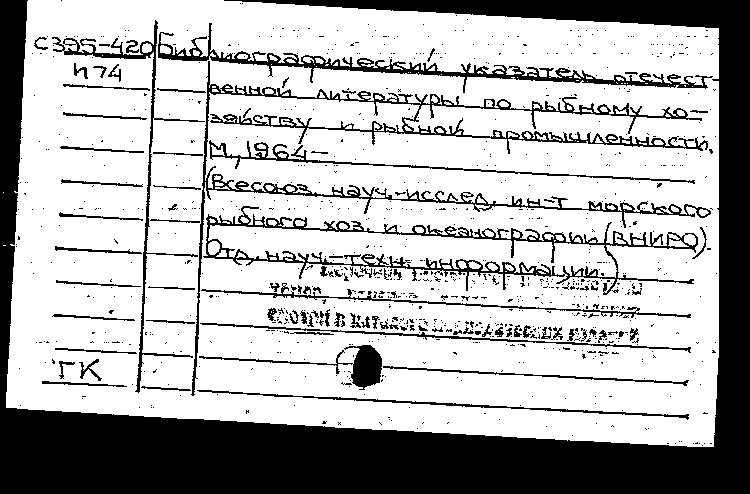 С395-420 Библиографический указатель отечест-
н74 венной литературы по рыбному хо-
зяйству и рыбной промышленности.
М., 1964-
(Всесоюз. науч.-исслед. ин-т морского
рыбного хоз. и океанографии (ВНИРО).
Отд. науч.-техн. информации.).
смотри в каталоге периодических изданий
ГК